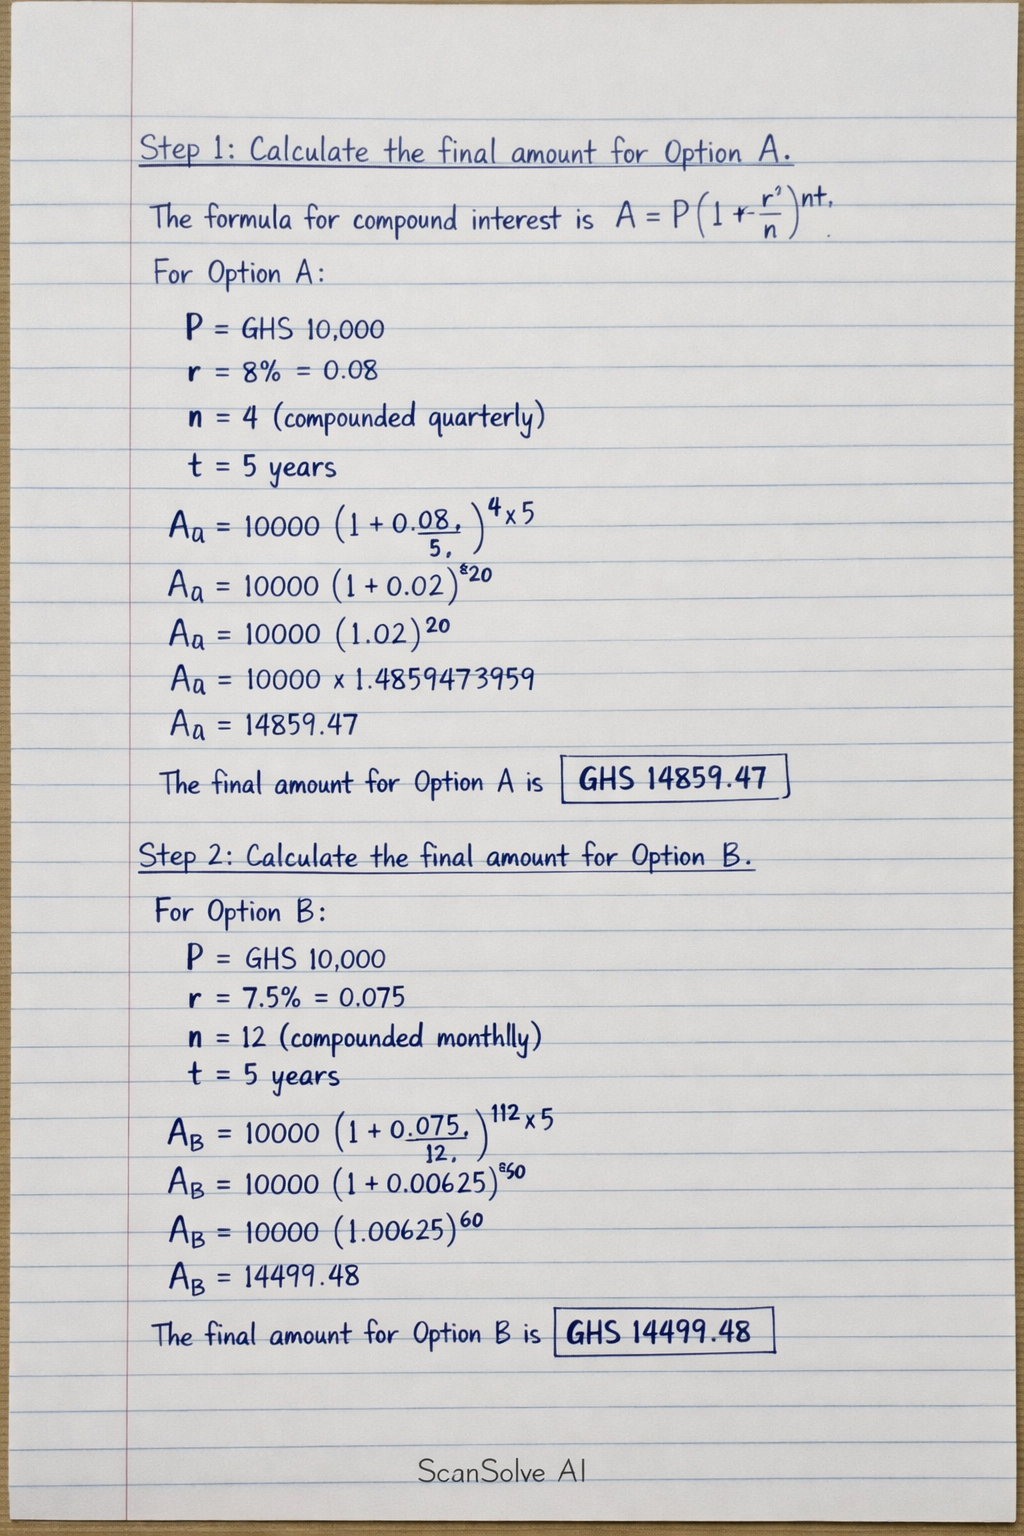 Step 1: Calculate the final amount for Option A.
The formula for compound interest is A = P(1 + r/n)^nt.
For Option A:
P = GHS 10,000
r = 8% = 0.08
n = 4 (compounded quarterly)
t = 5 years
Aₐ = 10000 (1 + 0.08/5.)^4×5
Aₐ = 10000 (1 + 0.02)^20
Aₐ = 10000 (1.02)^20
Aₐ = 10000 × 1.4859473959
Aₐ = 14859.47
The final amount for Option A is GHS 14859.47
Step 2: Calculate the final amount for Option B.
For Option B:
P = GHS 10,000
r = 7.5% = 0.075
n = 12 (compounded monthlly)
t = 5 years
A_B = 10000 (1 + 0.075./12.)^112×5
A_B = 10000 (1 + 0.00625)^50
A_B = 10000 (1.00625)^60
A_B = 14499.48
The final amount for Option B is GHS 14499.48
ScanSolve AI